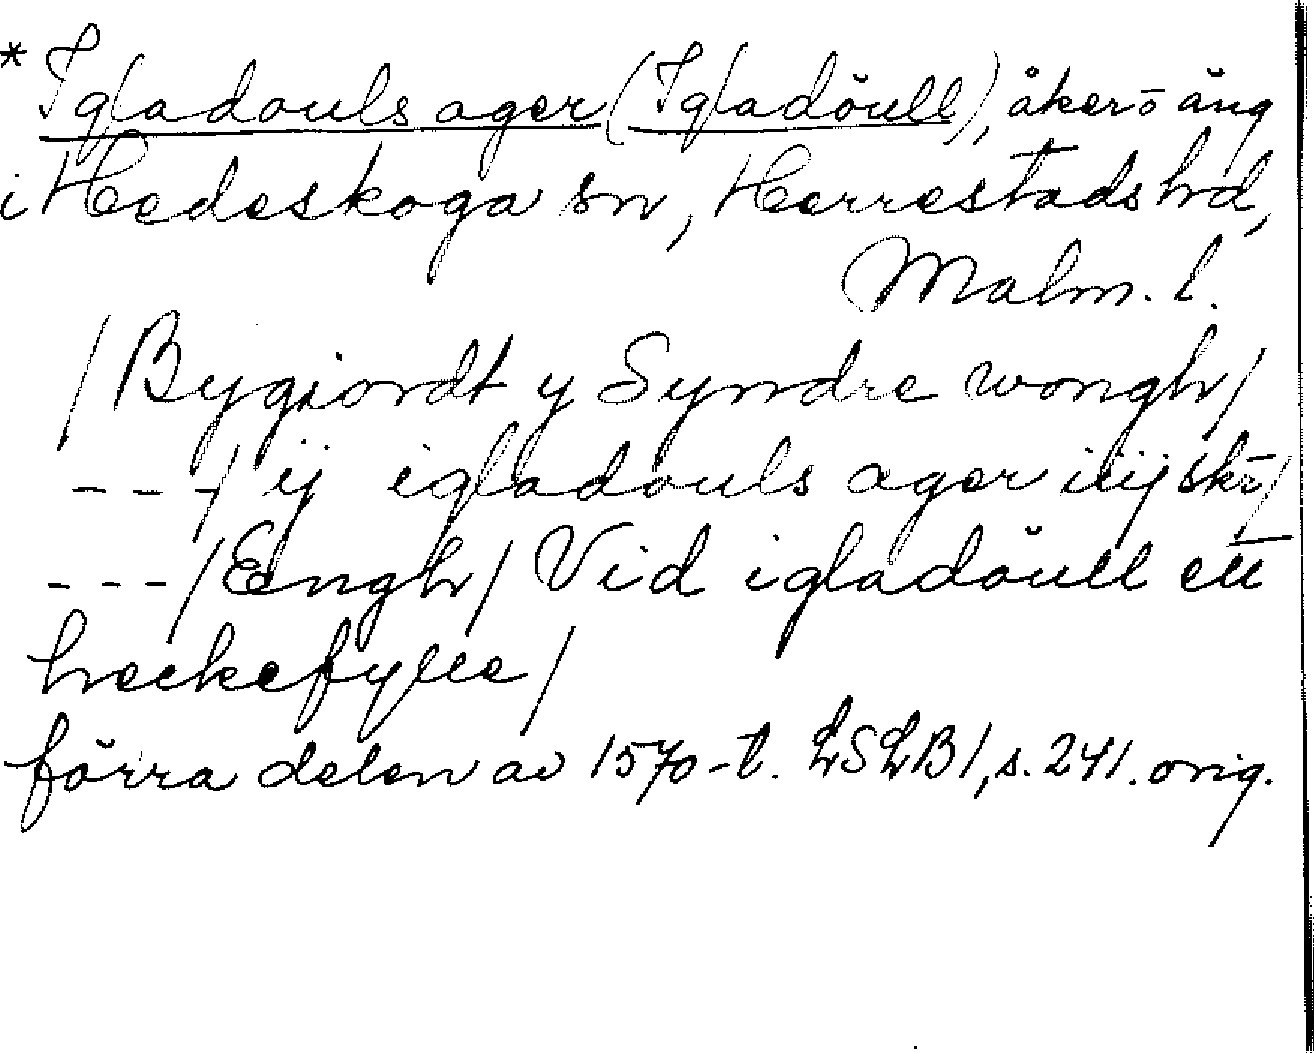 * Igladouls ager (Igladŏull), åker o äng
i Hedeskoga sn, Herrestads hd,
Malm. l.
/Bygiordt y Syndre wongh/
---/ ij igladouls ager iiij skr̄/
---/Engh/ Vid igladŏull ett
heckefylle/
förra delen av 1570-t. LSLB1, s. 241. orig.